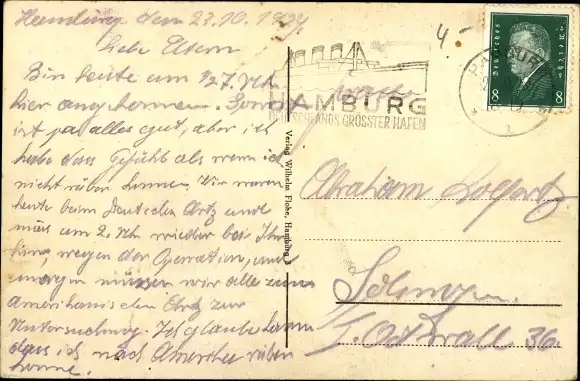 Hamburg den 23.10.1929.
Liebe Eltern
Bin heute um 1/2 7 Uhr
hier angekommen. Sonst
ist ja alles gut, aber ich
habe das Gefühl als wenn ich
nicht rüber komme. Wir waren
heute beim Deutschen Arzt und
muss um 2 Uhr wieder bei Ihm
hin, wegen der Operation, und
morgen müssen wir alle zum
Amerikanischen Arzt zur
Untersuchung. Ich glaube kaum
dass ich nach Amerika rüber
komme.
Verlag Wilhelm Flohe, Hamburg 3
HAMBURG
DEUTSCHLANDS GRÖSSTER HAFEN
4 -
Deutsches Reich
8 8
HAMBURG
1
Abraham
I.
36.